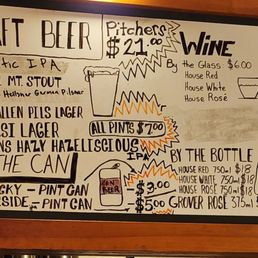 AFT BEER
tic IPA
MT. STOUT
Hellsner German Pilsner
ALLEN PILS LAGER
SI LAGER
NS HAZY HAZELISCIOUS
IPA
THE CAN
CKY - PINT CAN
RSIDE - PINT CAN
Pitchers
$21.00
ALL PINTS $7.00
CAN BEER
$3.00
$5.00
WINE
By the Glass $6.00
House Red
House White
House Rosé
BY THE BOTTLE
HOUSE RED 750ml $18
HOUSE WHITE 750ml $18
HOUSE ROSE 750ml $18
GROVER ROSÉ 375ml